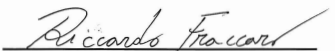 Riccardo Fraccaro